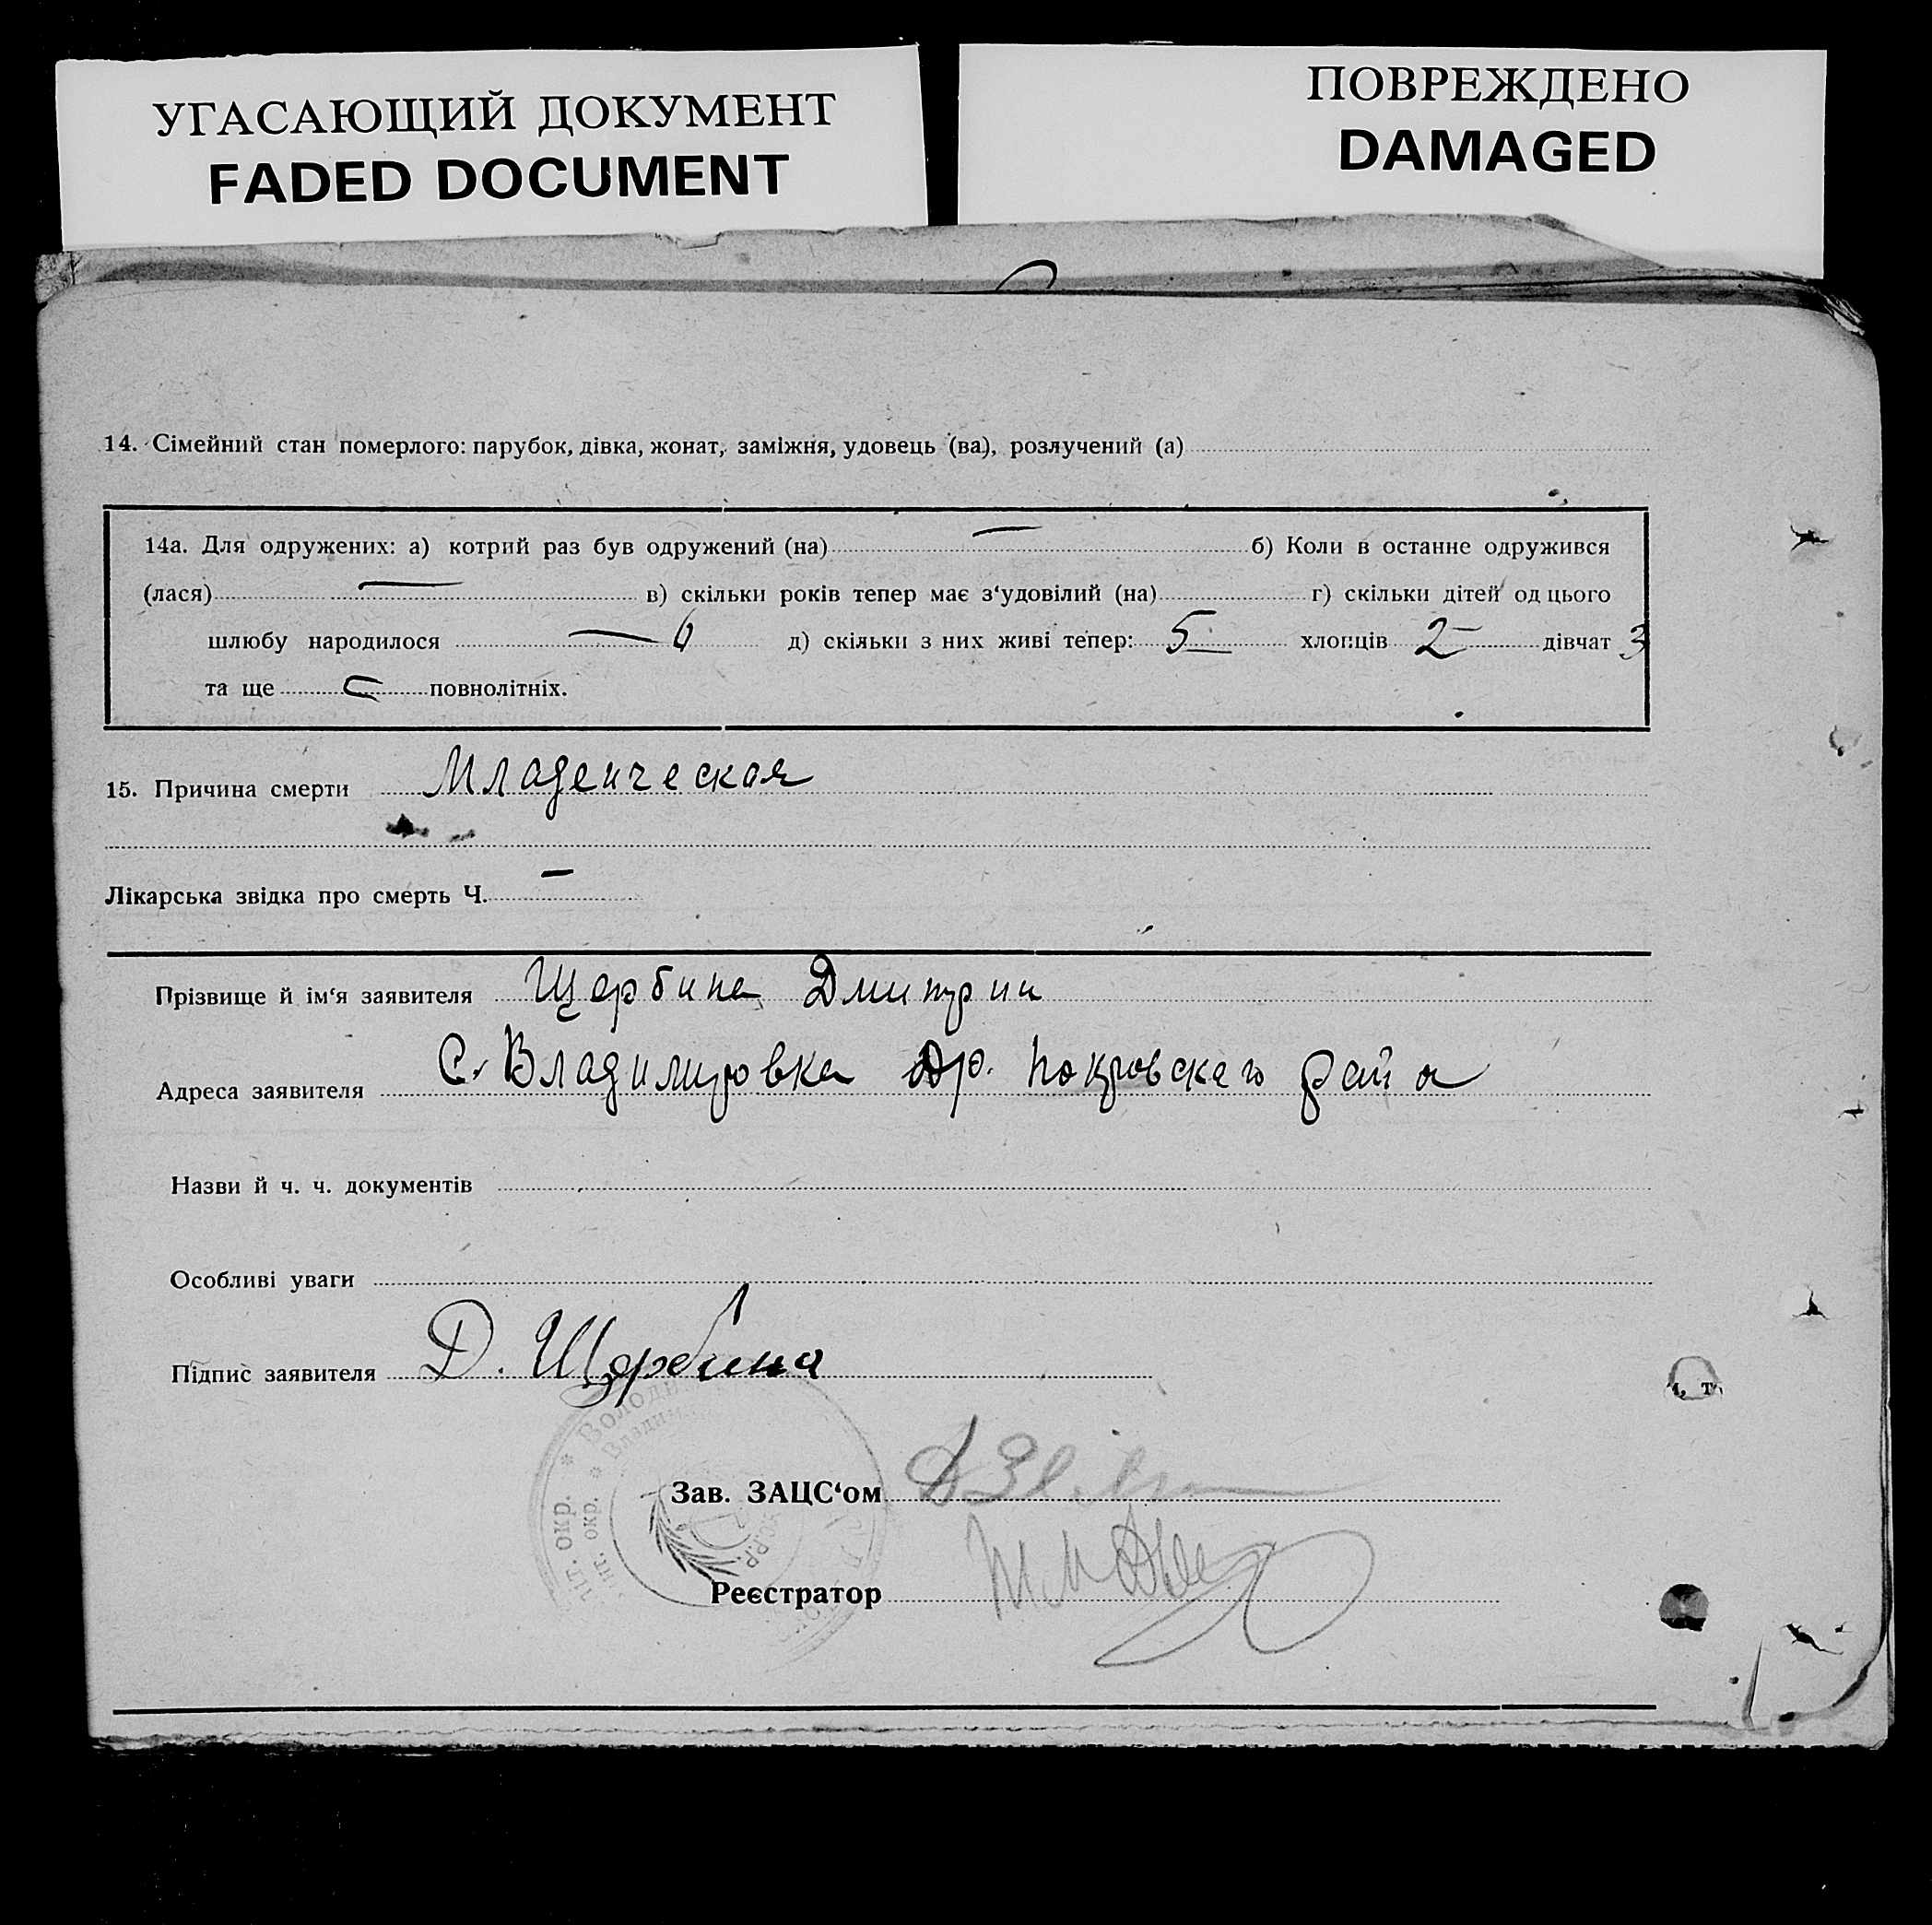 УГАСАЮЩИЙ ДОКУМЕНТ
FADED DOCUMENT
ПОВРЕЖДЕНО
DAMAGED
14. Сімейний стан померлого: парубок, дівка, жонат, заміжня, удовець (ва), розлучений (а)
14а. Для одружених: а) котрий раз був одружений (на) — б) Коли в останне одружився
(лася) — в) скільки років тепер має з‘удовілий (на) г) скільки дітей од цього
шлюбу народилося — 6 д) скільки з них живі тепер: 5 хлопців 2 дівчат 3
та ще повнолітніх.
15. Причина смерти Младенческая
Лікарська звідка про смерть Ч. —
Прізвище й ім‘я заявителя Щербина Дмитрии
Адреса заявителя С. Владимировка Покровскаго
Назви й ч. ч. документів
Особливі уваги
Підпис заявителя Д. Щербина
Зав. ЗАЦС‘ом
Реєстратор